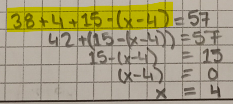 38+4+15-(x-4)=57
42+(15-(x-4))=57
15-(x-4) = 15
(x-4) = 0
x = 4